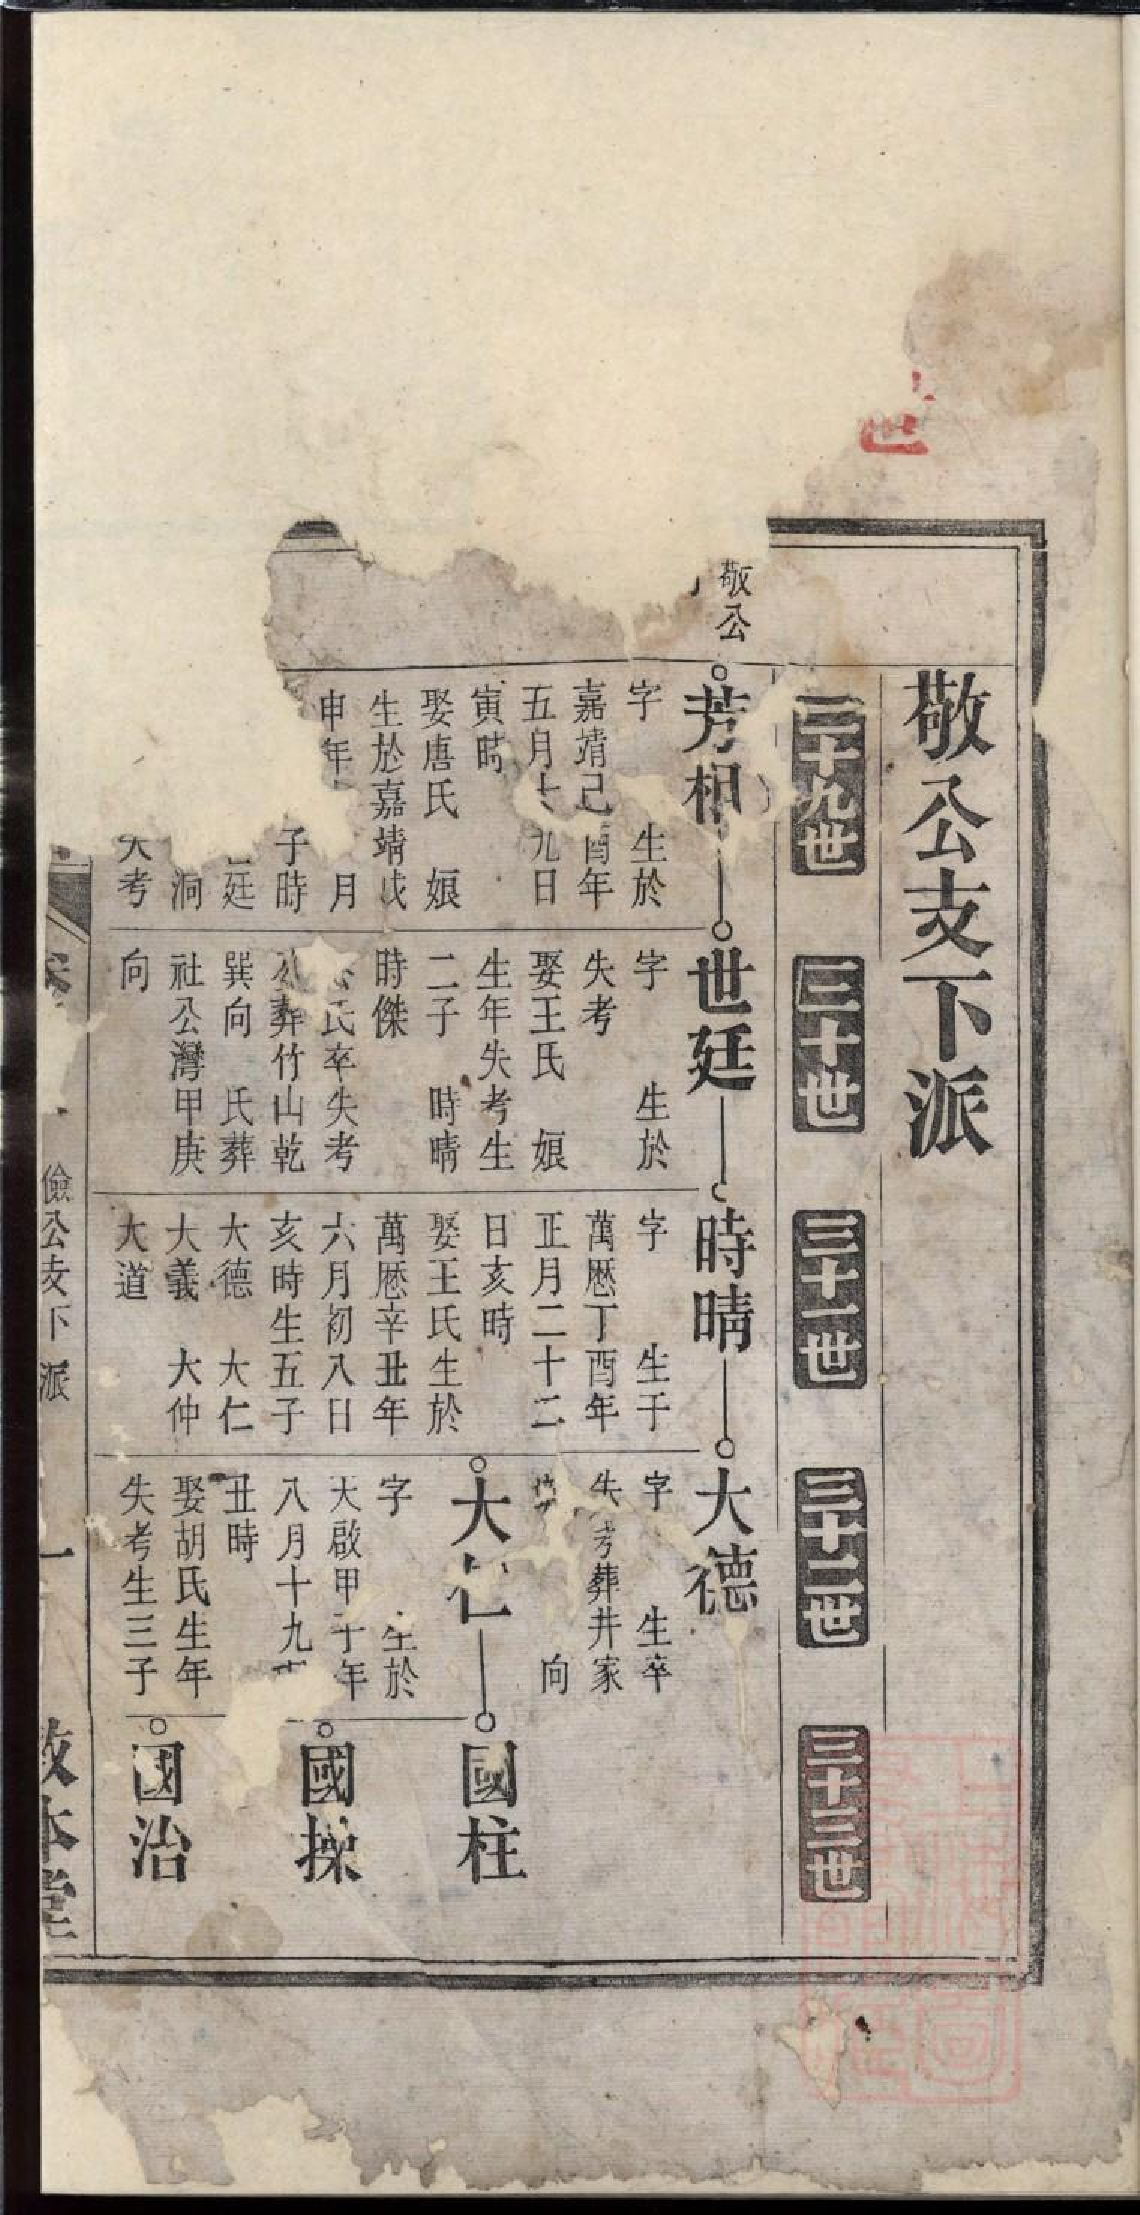 敬公支下派
二十九世
三十世
三十一世
三十二世
三十三世
敬公
芳相
字 生於
嘉靖己酉年
五月十九日
寅時
娶唐氏 娘
生於嘉靖戊
申年 月
子時
廷
洞
失考
世廷
字 生於
失考
娶王氏 娘
生年失考生
二子 時晴
時傑
氏卒失考
公葬竹山乾
巽向 氏葬
社公灣甲庚
向
時晴
字 生于
萬曆丁酉年
正月二十二
日亥時
娶王氏生於
萬曆辛丑年
六月初八日
亥時生五子
大德 大仁
大義 大仲
大道
大德
字 生卒
失考葬井家
向
大仁
字 生於
天啟甲子年
八月十九
丑時
娶胡氏生年
失考生三子
國柱
國㨂
國治
儉公支下派
一
敦本堂